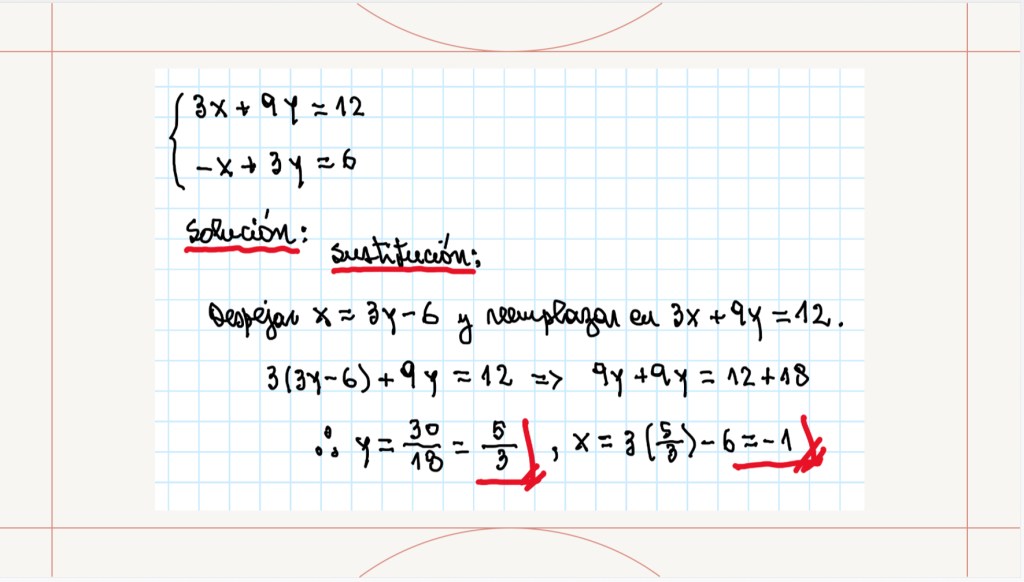 3x + 9y = 12
-x + 3y = 6
Solución:
Sustitución:
Despejar x = 3y - 6 y reemplazar en 3x + 9y = 12.
3(3y-6) + 9y = 12 => 9y + 9y = 12 + 18
∴ y = 30/18 = 5/3, x = 3(5/3) - 6 = -1